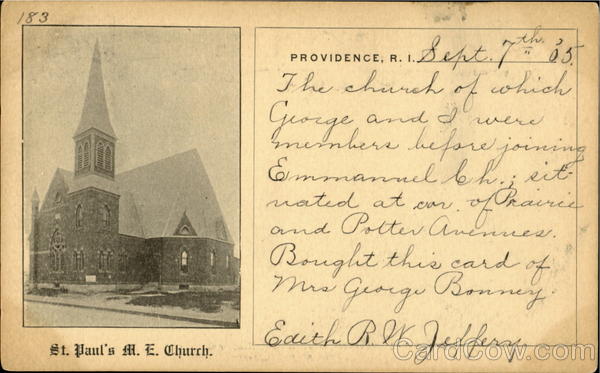 183
PROVIDENCE, R. I. Sept. 7th. '05.
The church of which
George and I were
members before joining
Emmanuel Ch.; sit-
uated at cor. of Prairie
and Potter Avenues.
Bought this card of
Mrs George Bonney.
Edith R. W. Jeffery.
St. Paul's M. E. Church.
CardCow.com